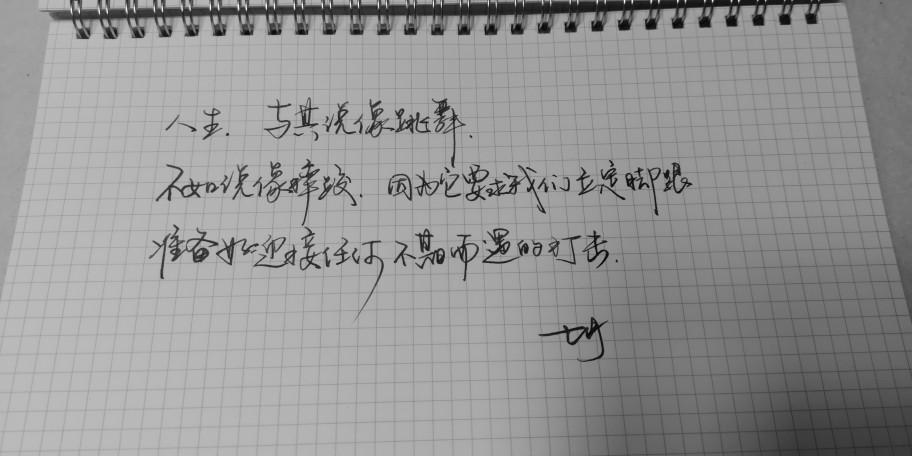 人生,与其说像跳舞,
不如说像摔跤,因为它要求我们立定脚跟
准备好迎接任何不期而遇的打击.